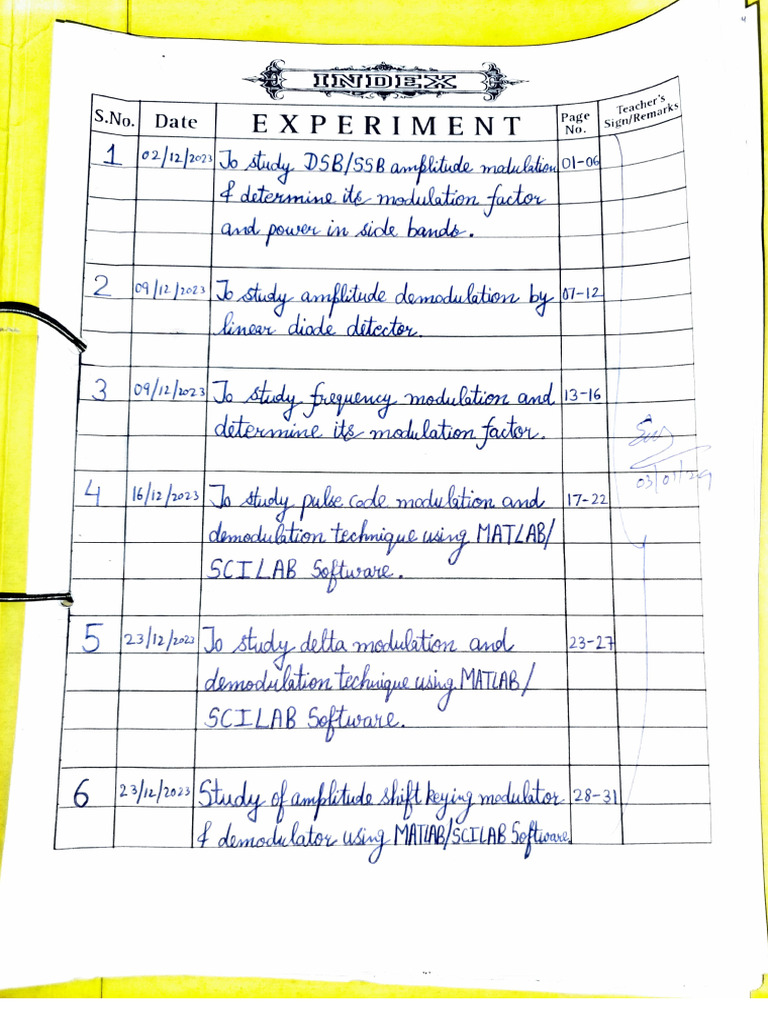 INDEX
S.No. Date EXPERIMENT Page No. Teacher's Sign/Remarks
1 02/12/2023 To study DSB/SSB amplitude modulation 01-06
& determine its modulation factor
and power in side bands.
2 09/12/2023 To study amplitude demodulation by 07-12
linear diode detector.
3 09/12/2023 To study frequency modulation and 13-16
determine its modulation factor.
03/01/24
4 16/12/2023 To study pulse code modulation and 17-22
demodulation technique using MATLAB/
SCILAB Software.
5 23/12/2023 To study delta modulation and 23-27
demodulation technique using MATLAB/
SCILAB Software.
6 23/12/2023 Study of amplitude shift keying modulator 28-31
& demodulator using MATLAB/SCILAB Software.